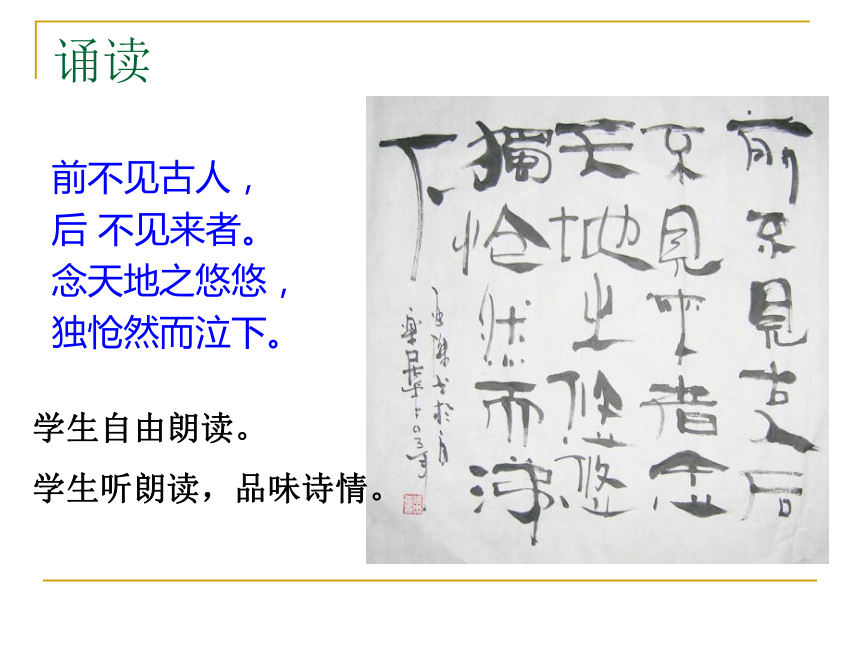 诵读
前不见古人，
后 不见来者。
念天地之悠悠，
独怆然而泣下。
学生自由朗读。
学生听朗读，品味诗情。
前不見古人后
不見来者念
天地之悠悠
獨怆然而涕
下